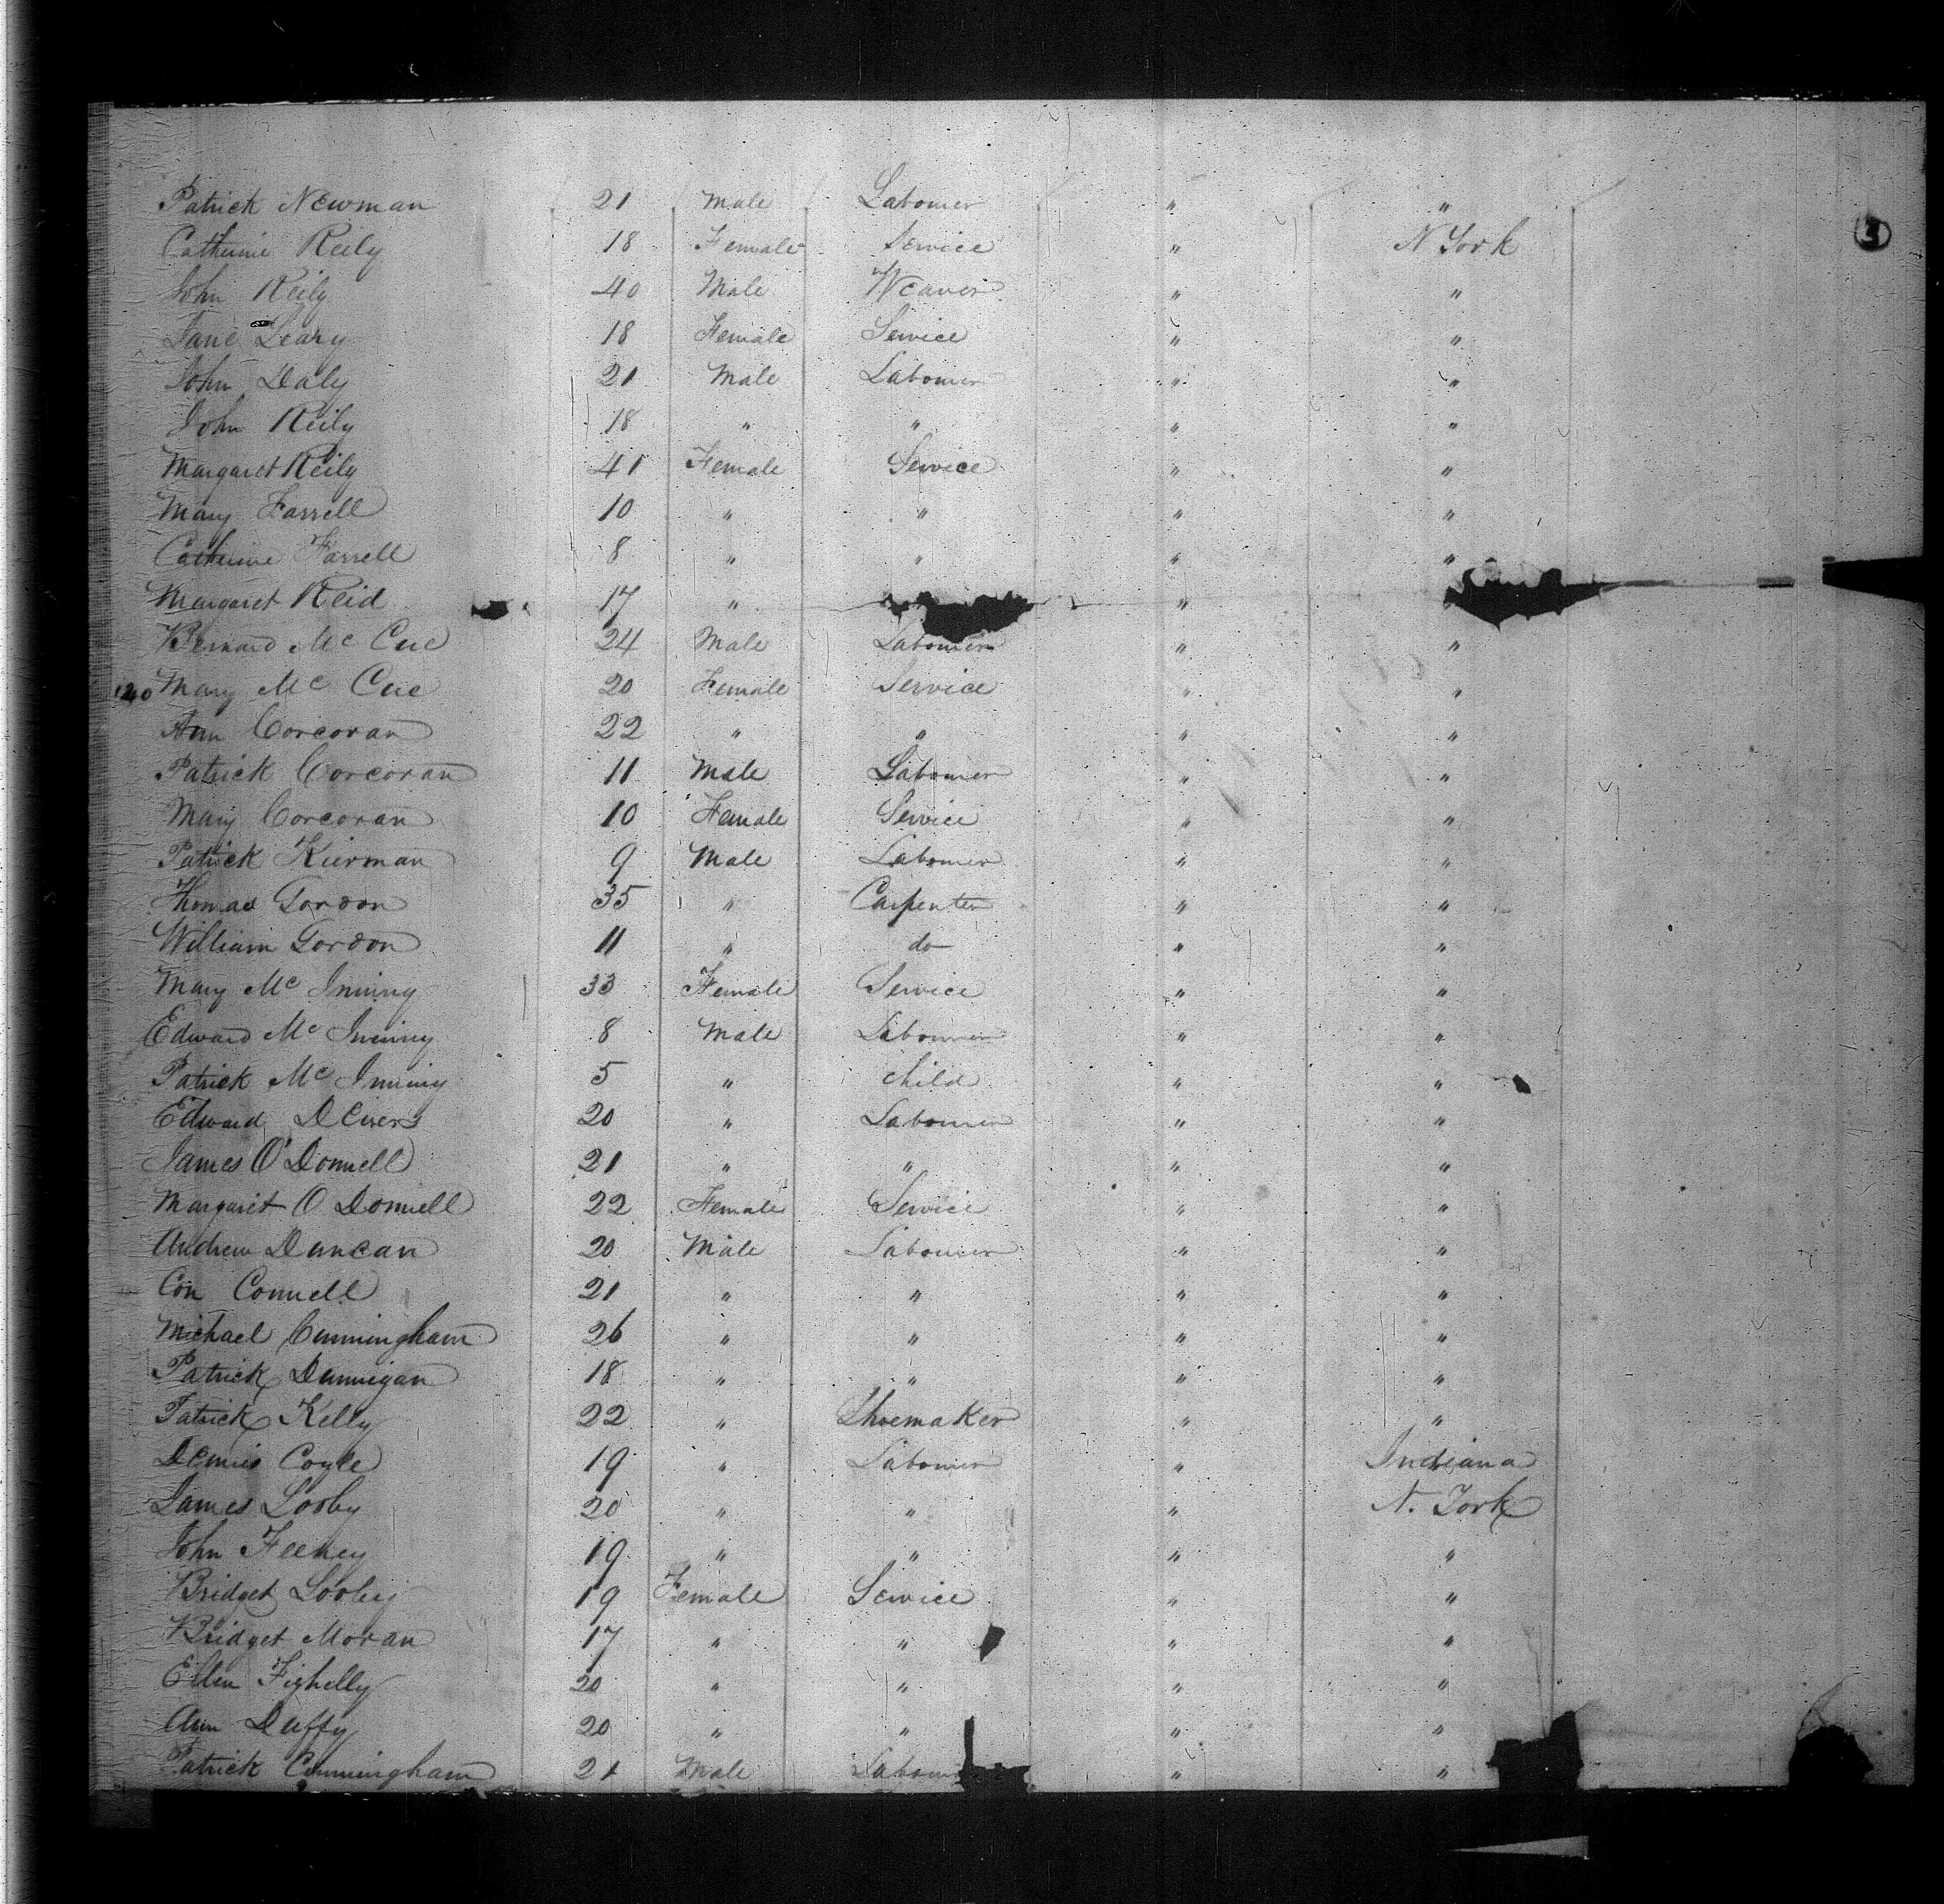 Patrick Newman 21 Male Labourer " "
Catherine Reily 18 Female Service " N York
John Reily 40 Male Weaver " "
Jane Leary 18 Female Service " "
John Daly 21 Male Labourer " "
John Reily 18 " " " "
Margaret Reily 41 Female Service " "
Mary Farrell 10 " " " "
Catherine Farrell 8 " " " "
Margaret Reid 17 " "
Bernard Mc Cue 24 Male Labourer " "
140 Mary Mc Cue 20 Female Service " "
Ann Corcoran 22 " " " "
Patrick Corcoran 11 Male Labourer " "
Mary Corcoran 10 Female Service " "
Patrick Kiernan 9 Male Labourer " "
Thomas Gordon 35 " Carpenter " "
William Gordon 11 " do " "
Mary Mc 33 Female Service " "
Edward Mc 8 Male Labourer " "
Patrick Mc 5 " child " "
Edward Devers 20 " Labourer " "
James O'Donnell 21 " " " "
Margaret O Donnell 22 Female Service " "
Andrew Duncan 20 Male Labourer " "
Con Connell 21 " " " "
Michael Cunningham 26 " " " "
Patrick Dunnigan 18 " " " "
Patrick Kelly 22 " Shoemaker " "
Dennis Coyle 19 " Labourer " Indiana
James Looby 20 " " " N. York
John Feeney 19 " " " "
Bridget Looby 19 Female Service " "
Bridget Moran 17 " " " "
Ellen Fighelly 20 " " " "
Ann Duffy 20 " " " "
Patrick Cunningham 21 Male Labourer " "
3